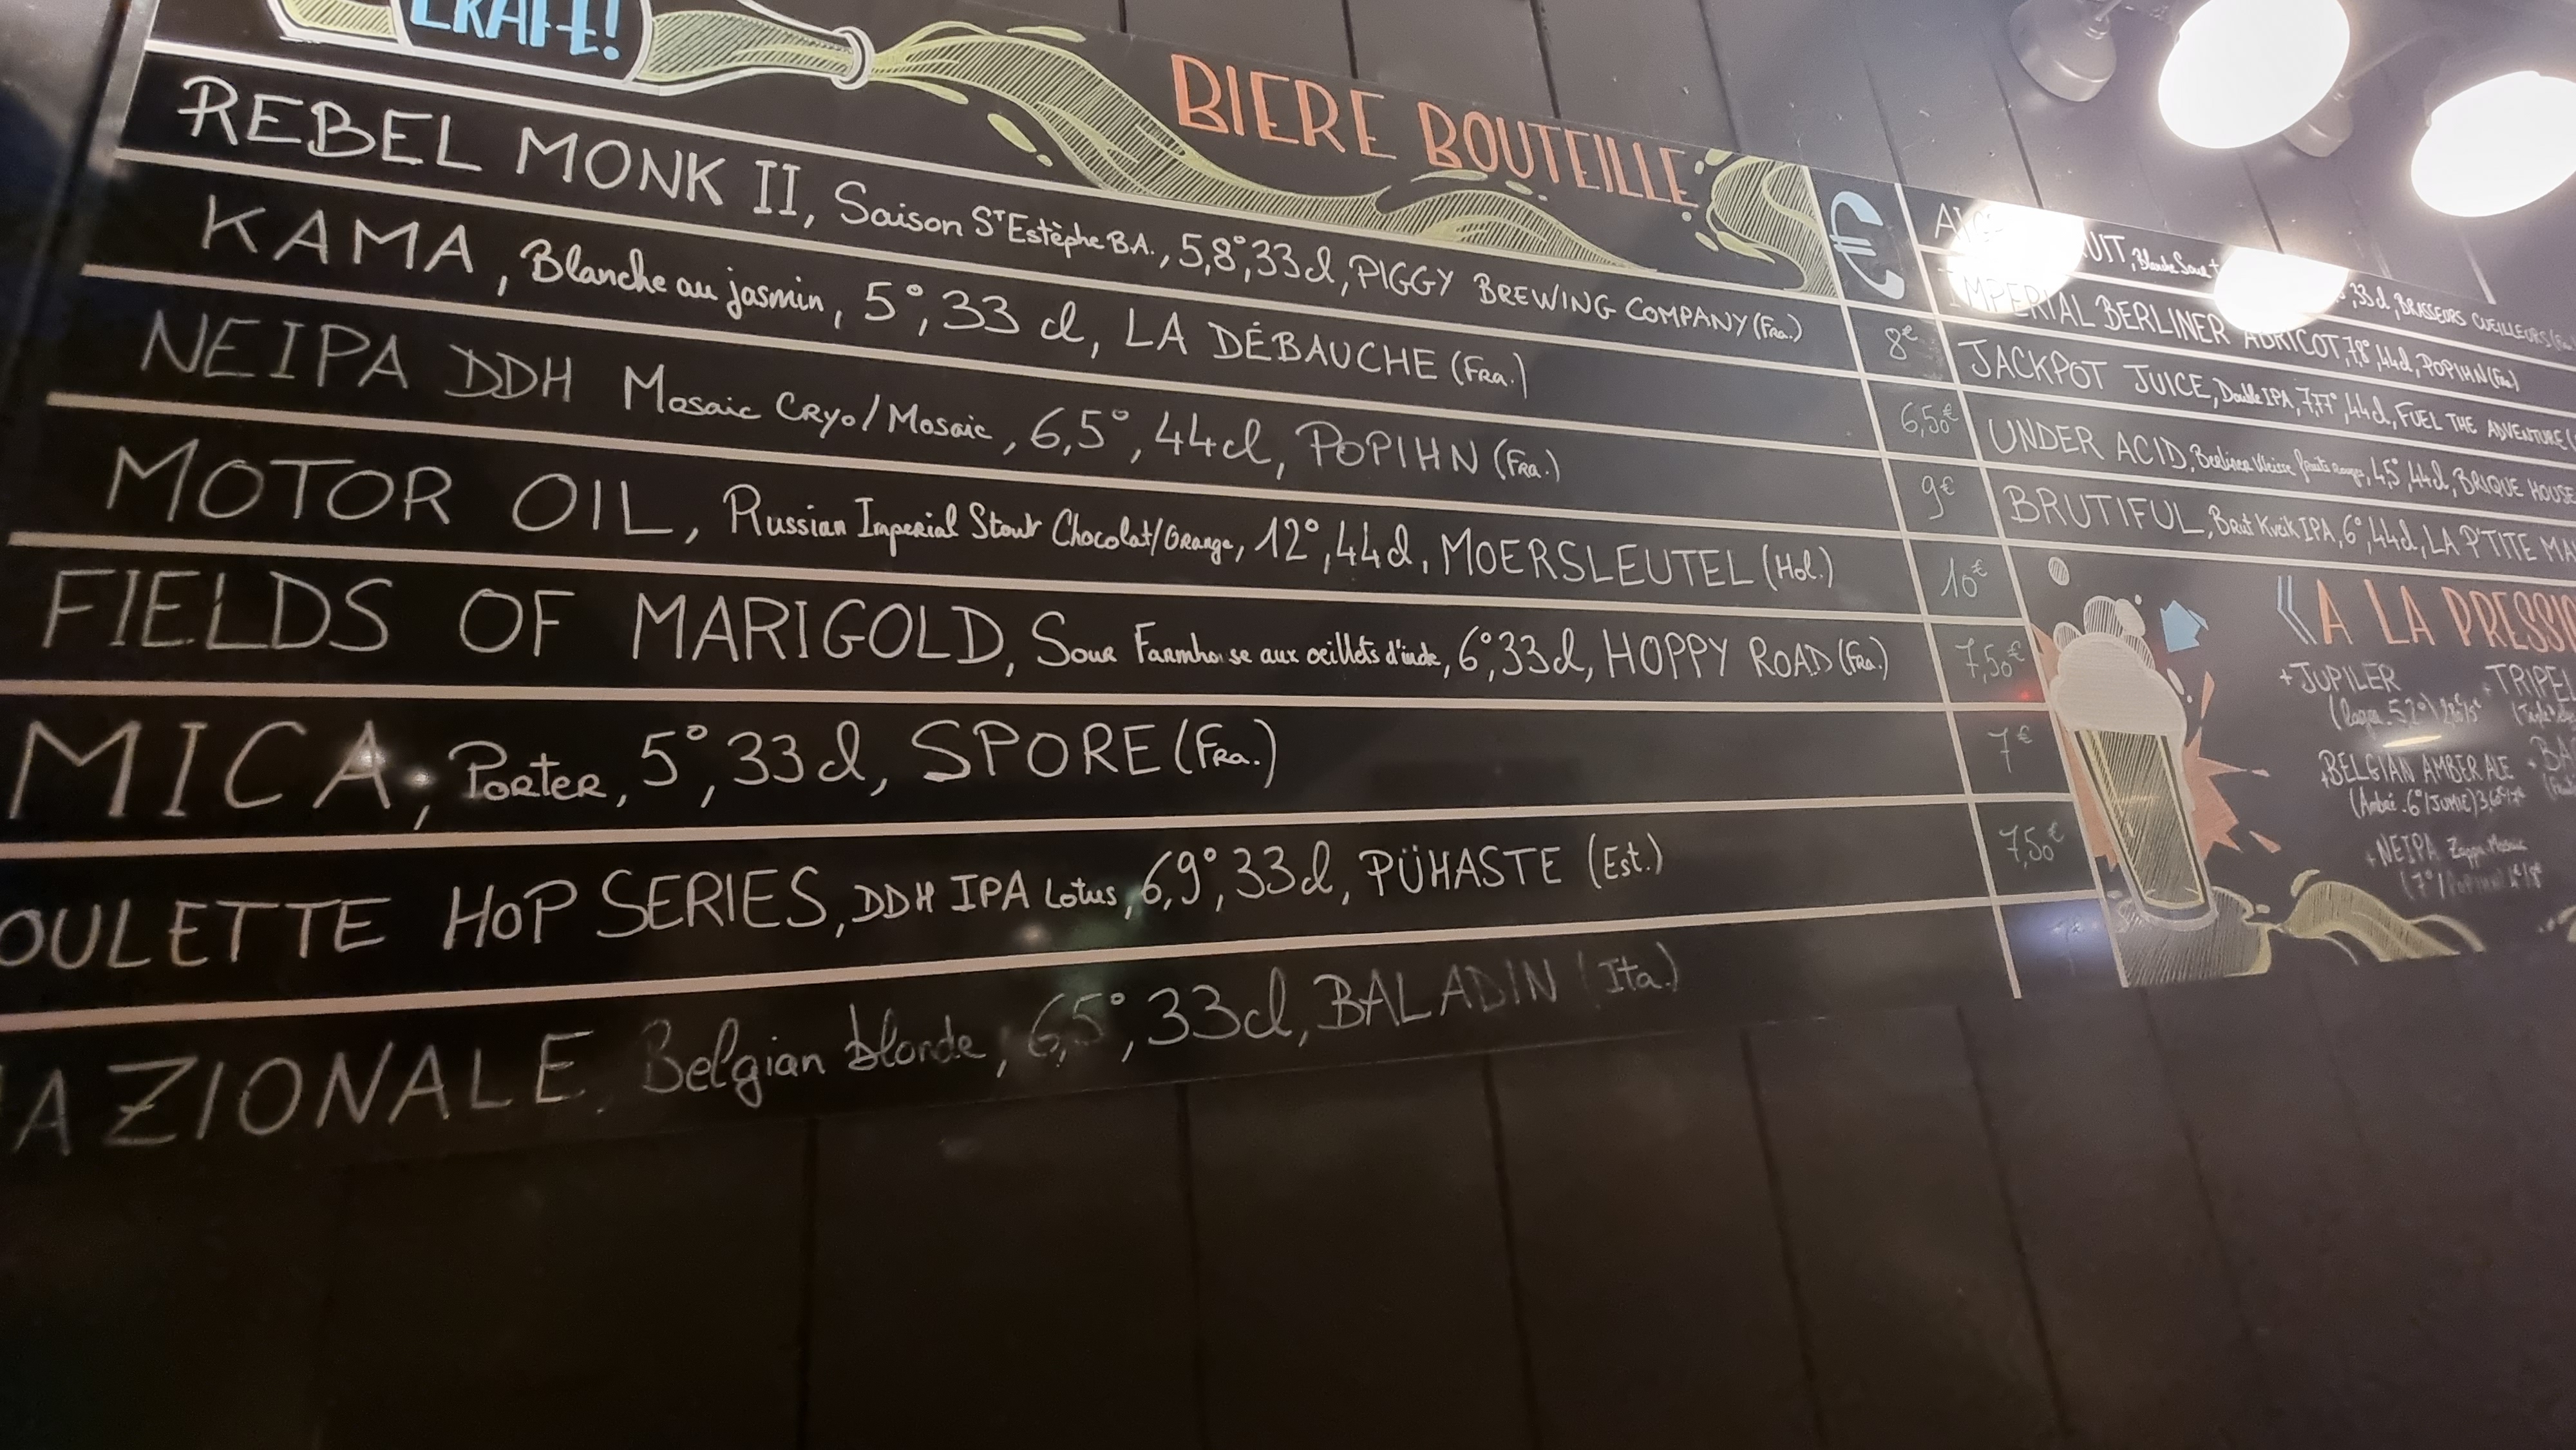 CRAFT!
BIERE BOUTEILLE
€
REBEL MONK II, Saison Sᵀ Estèphe B.A., 5,8°, 33cl, PIGGY BREWING COMPANY (Fra.) 8€
KAMA, Blanche au jasmin, 5°, 33 cl, LA DÉBAUCHE (Fra.) 6,50€
NEIPA DDH Mosaic Cryo/Mosaic, 6,5°, 44cl, POPIHN (Fra.) 9€
MOTOR OIL, Russian Imperial Stout Chocolat/Orange, 12°, 44cl, MOERSLEUTEL (Hol.) 10€
FIELDS OF MARIGOLD, Sour Farmhouse aux oeillets d'inde, 6°, 33cl, HOPPY ROAD (Fra.) 7,50€
MICA, Porter, 5°, 33cl, SPORE (Fra.) 7€
OULETTE HOP SERIES, DDH IPA Lotus, 6,9°, 33cl, PÜHASTE (Est.) 7,50€
AZIONALE, Belgian blonde, 6,5°, 33cl, BALADIN (Ita.)
UIT, Blanche Sour + 33cl, BRASSEURS CUEILLEURS
IMPERIAL BERLINER ABRICOT, 7,8°, 44cl, POPIHN (Fra.)
JACKPOT JUICE, Double IPA, 7,77°, 44cl, FUEL THE ADVENTURE (
UNDER ACID, Berliner Weisse fruits rouges, 4,5°, 44cl, BRIQUE HOUSE
BRUTIFUL, Brut Kveik IPA, 6°, 44cl, LA P'TITE MA
« A LA PRESSIO
+ JUPILER
+ TRIPEL
(lager. 5,2°)
+ BELGIAN AMBER ALE
+ BA
(Ambré. 6°/JUMIE)
+ NEIPA Zappa Mosaic
(7°/POPIHN)